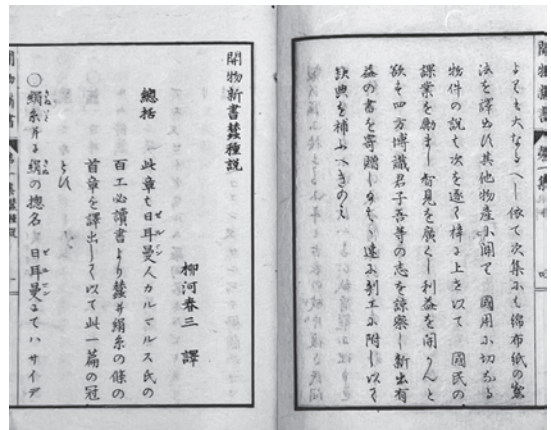 よりも大なるへし依て次集にも綿布紙の製
法を譯出し其他物産に關て國用に切なる
物件の説も次を逐て梓に上を以て國民の
課業を励まし智見を廣くし利益を開かんと
欲も四方博識君子吾等の志を諒察し新出有
益の書を寄贈しなも速に剞工に附し以て
欽典を補ふへきのミ
開物新書蠶種説
柳河春三 譯
總括 此章も日耳曼人カルマルス氏の
百工必讀書より蠶并絹糸の條の
首章を譯出して以て此一篇の冠
とし
〇絹糸并に絹の惣名 日耳曼にてハサイデ
開物新書
第一集
開物新書
第一集蠶種説